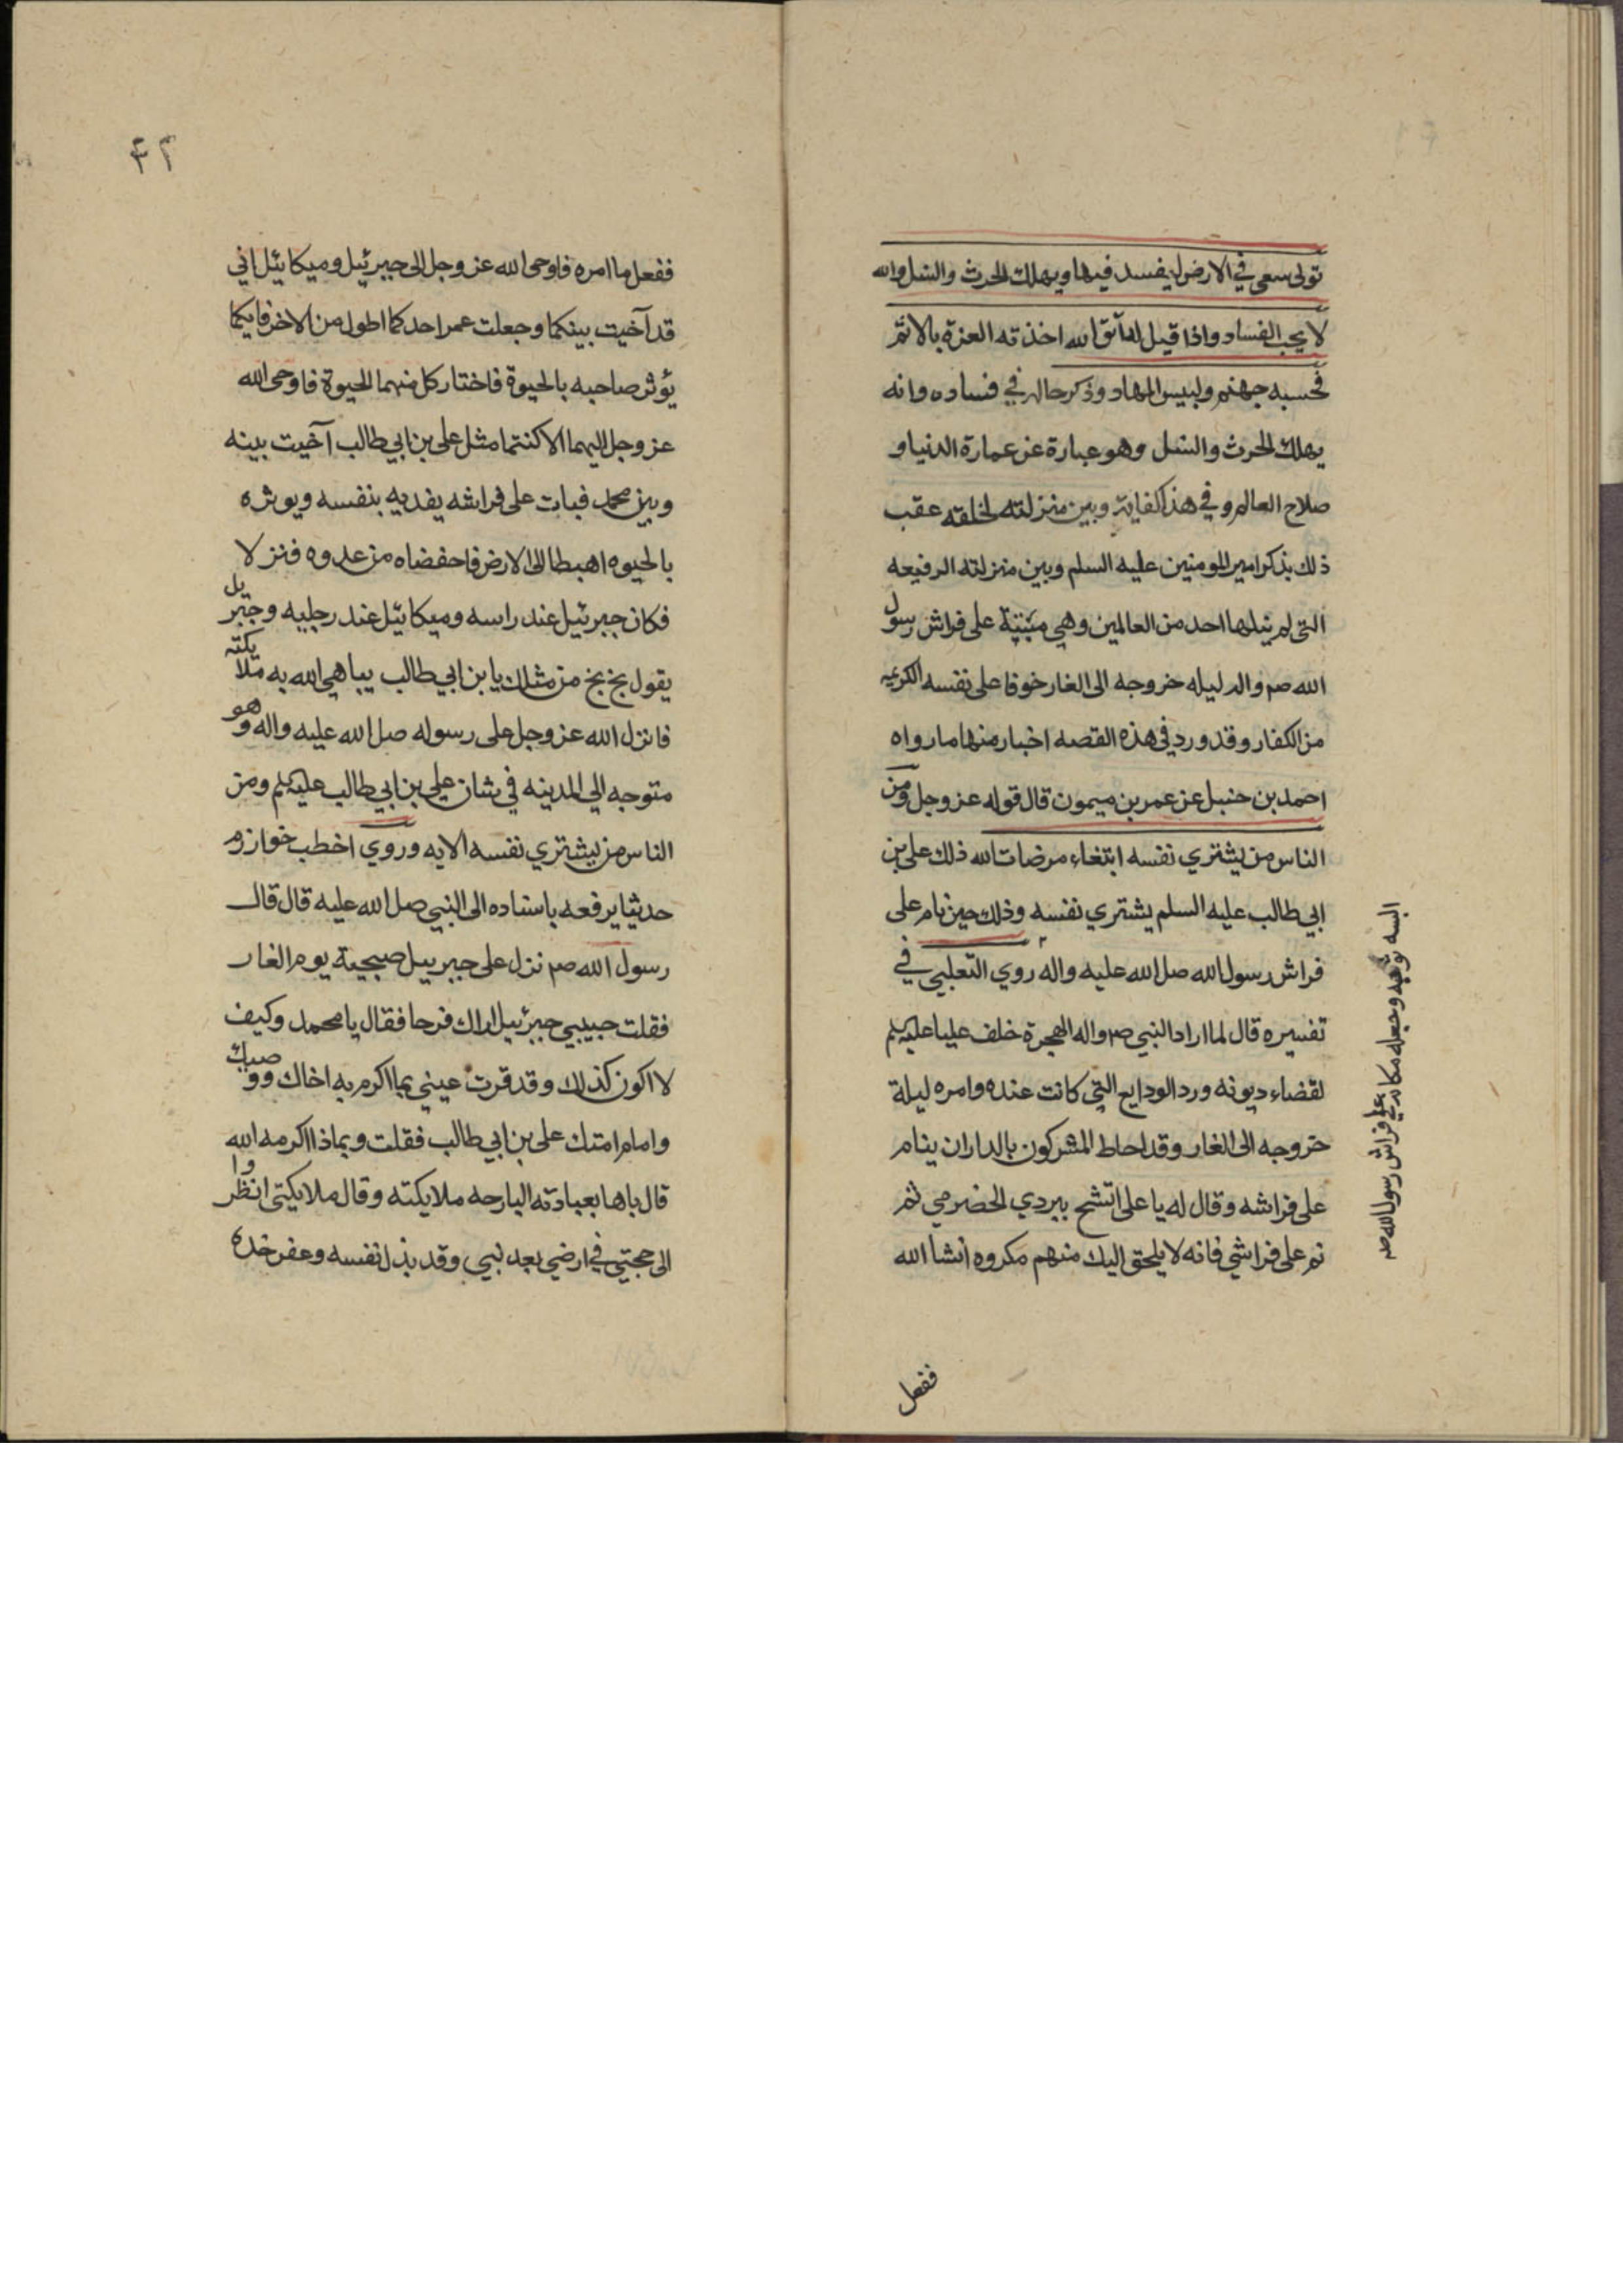 تولى سعى في الارض ليفسد فيها ويهلك الحرث والنسل والله
لا يحب الفساد واذا قيل له اتق الله اخذته العزة بالاثم
فحسبه جهنم ولبيس المهاد وذكر حاله في فساده وانه
يهلك الحرث والنسل وهو عبارة عن عمارة الدنيا و
صلاح العالم وفي هذا كفاية وبين منزلته لخلقه عقب
ذلك بذكر امير المومنين عليه السلم وبين منزلته الرفيعه
التى لم ينلها احد من العالمين وهي مبيته على فراش رسول
الله صم واله ليله خروجه الى الغار خوفا على نفسه الكريمه
من الكفار وقد ورد في هذه القصه اخبار منها ما رواه
احمد بن حنبل عن عمر بن ميمون قال قوله عز وجل ومن
الناس من يشتري نفسه ابتغاء مرضات الله ذلك على بن
ابي طالب عليه السلم يشتري نفسه وذلك حين نام على
فراش رسول الله صل الله عليه واله روي الثعلبي في
تفسيره قال لما اراد النبي صم واله الهجرة خلف عليا عليه السلم
لقضاء ديونه ورد الودايع التي كانت عنده وامره ليلة
خروجه الى الغار وقد احاط المشركون بالدار ان ينام
على فراشه وقال له يا على اتشح ببردي الحضرمي ثم
نم على فراشي فانه لا يلحق اليك منهم مكروه انشا الله
البسه ثوبه وجعله مكانه على فراش رسول الله صم
ففعل
۴۲
ففعل ما امره فاوحى الله عز وجل الى جبرئيل وميكائيل اني
قد آخيت بينكما وجعلت عمر احدكما اطول من الاخر فايكما
يؤثر صاحبه بالحيوة فاختار كل منهما الحيوة فاوحى الله
عز وجل اليهما الا كنتما مثل على بن ابي طالب آخيت بينه
وبين محمد فبات على فراشه يفديه بنفسه ويوثره
بالحيوه اهبطا الى الارض فاحفضاه من عدوه فنزلا
فكان جبرئيل عند راسه وميكائيل عند رجليه وجبريل
يقول بخ بخ من مثلك يا بن ابي طالب يباهي الله به ملايكته
فانزل الله عز وجل على رسوله صل الله عليه واله وهو
متوجه الى المدينه في شان علي بن ابي طالب عليه السلم ومن
الناس من يشتري نفسه الايه وروي اخطب خوازرم
حديثا يرفعه باسناده الى النبي صل الله عليه قال قال
رسول الله صم نزل على جبرييل صبيحة يوم الغار
فقلت حبيبي جبرئيل اراك فرحا فقال يا محمد وكيف
لا اكون كذلك وقد قرت عيني بما اكرم به اخاك ووصيك
وامام امتك على بن ابي طالب فقلت وبماذا اكرمه الله
قال باها بعبادته البارحه ملايكته وقال ملايكتى انظروا
الى حجتي في ارضي بعد نبيي وقد بذل نفسه وعفر خده